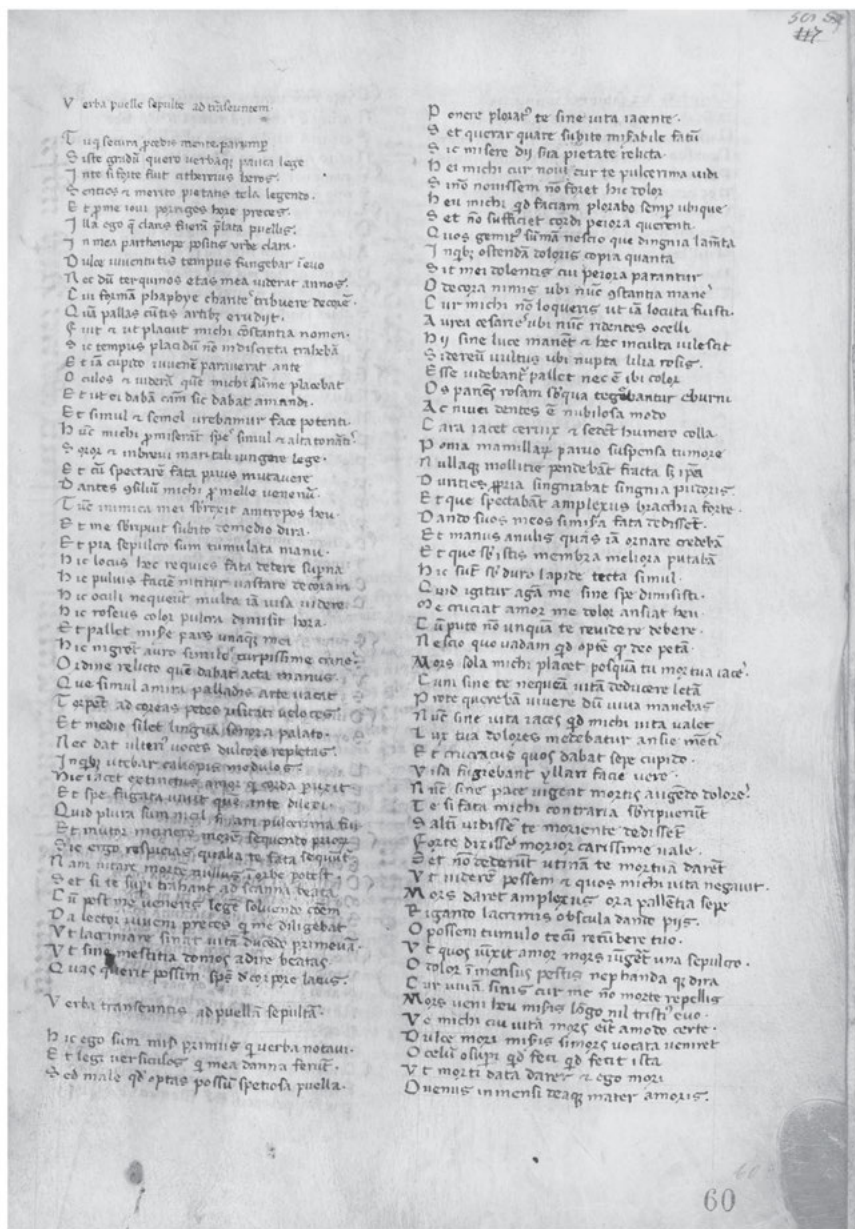 501
117
Verba puelle sepulte ad trãseuntem.
Tuq̃ secura pedis mente parump̃
Siste gradũ quero verbaqȝ pauca lege
In te si forte fuit cithereius heros.
Senties ⁊ merito pietatis tela legendo.
Et p̃ me ioui porriges hore preces.
Illa ego q̃ claris fuerã p̃lata puellis.
In mea parthenope positis urbe clara.
Dulce iuventutis tempus fungebar ĩ evo
Nec dũ ter quinos etas mea viderat annos.
Cui formã phaphye charite tribuere decorẽ.
Quã pallas cũtis artibȝ erudiit.
Fuit ⁊ ut placuit michi cõstantia nomen.
Sic tempus placidũ nõ indiscreta trahebã
Et iã cupido iuvenẽ paraverat ante
Oculos ⁊ viderã quẽ michi sũme placebat
Et ut ei dabã cam sic dabat amandi.
Et simul ⁊ semel urebamur face potenti.
Hũc michi p̃miserãt spes simul ⁊ alta
Soror ⁊ in brevi maritali iungere lege.
Et cũ spectarẽ fata prius mutavere
Dantes ꝯsiliũ michi p̃ melle venenũ.
Tũc inimica mei sbrexit antropos heu.
Et me sbripuit subito de medio dira.
Et pia sepulcro sum tumulata manu.
Hic locus hec requies fata dedere sup̃na
Hic pulvis faciẽ nititur vastare decoram
Hic oculi nequeũt multa iã visa videre
Hic roseus color pulcra dimisit hora.
Et pallet mise pars unaqȝ mei
Hic nigrẽt auro similes turpissime crines
Ordine relicto quẽ dabat acta manus.
Que simul amini palladis arte vacat
Torpẽt ad coreas pedes usitati veloces.
Et medio silet lingua sonora palato.
Nec dat ulteri voces dulcore repletas.
In qbȝ utebar caliopis modulos.
Hic iacet extinctus amor q corda
Et spe fugata vivit que ante dilexi.
Quid plura sum nigil, pulcerima fui
Et mutor
Sic ergo respicias, qualia te fata sequũt̃
Nam vitare morte nullus ĩ orbe potest.
Set si te sup̃i trahant ad scanna beata
Cũ post me veneris legẽ solvendo
Da lector iuveni preces q me diligebat
Ut lacrimare sinat vitã ducẽdo primevã.
Ut sine mestitia domos adire beatas
Quas querit possim sp̃s de corpore latus.
Verba transeuntis ad puellã sepultã.
Hic ego sum mis̃ primus q verba notavi.
Et legi versiculos q mea danna ferũt.
Sed male qd optas possũ spetiosa puella.
Ponere plorat⁹ te sine vita iacente.
Set querar quare subito misabile fatũ
Sic misere dij sua pietate relicta.
Hei michi cur novi cur te pulcerima vidi
Si nõ novissem nõ foret hic dolor
Heu michi qd faciam plorabo semp ubique
Set nõ sufficiet cordi peiora querenti.
Quos gemit⁹ sũmã nescio que dingnia lam̃ta
In qbȝ ostendã doloris copia quanta
Sit mei dolentis cui peiora parantur
O decora nimis ubi nũc ꝯstantia manes
Cur michi nõ loqueris ut iã locuta fuisti.
Aurea cesaries ubi nũc ridentes ocelli
Hij sine luce manẽt ⁊ hec inculta vilescit
Sidereũ vultus ubi nupta lilia rosis.
Esse videbant̃ pallet nec ẽ ibi color
Os parẽs rosam sb qua tegebantur eburni
Ac nivei dentes ẽ nubilosa modo
Cara iacet cervix ⁊ sedẽt humero colla.
Poma mamillaȝ parvo suspensa tumore
Nullaqȝ mollitie pendebãt fracta sȝ ip̃a
Durities p̃pria singniabat singnia pudoris.
Et que spectabãt amplexus bracchia forte.
Dando suos meos si mis̃a fata dedissẽt.
Et manus anulis quas iã ornare credebã
Et que sb istis membra meliora putabã
Hic sũt sb duro lapide tecta simul.
Quid igitur agã me sine spe dimisisti.
Me cruciat amor me dolor ansiat heu.
Cũ puto nõ unquã te revidere debere.
Nescio quo vadam qd opte q̃ deo petã.
Mors sola michi placet posquã tu mortua iaces
Cum sine te nequeã vitã deducere letã
Pro te querebã vivere dũ viva manebas
Nũc sine vita iaces qd michi vita valet
Lux tua dolores medebatur ansie
Et cruciatus quos dabat sepe cupido.
Visa fugiebant yllari facie vere.
Nũc sine pace vigent mortis augẽdo dolores
Te si fata michi contraria sbripuerũt
Saltẽ vidisse te moriente dedissẽt
Forte dixisse morior carissime vale.
Set nõ dederũt utinã te mortuã darẽt
Ut viderẽ possem ⁊ quos michi vita negavit.
Mors daret amplexus ora pallentia sepe
Rigando lacrimis obscula dando pijs.
O possem tumulo tecũ recũbere tuo.
Ut quos iũxit amor mors iũgẽt una sepulcro.
O dolor ĩmensus pestis nephanda q̃ dira
Cur vivã sinis cur me nõ morte repellis
Mors veni heu misis lõgo nil tristi⁹ evo.
Ve michi cui vitã mors erit amodo certe.
Dulce mori misis si mors vocata veniret
O celũ o sup̃i qd feci qd fecit ista
Ut morti data daret̃ ⁊ ego mori
O venus inmensi deaqȝ mater amoris.
60